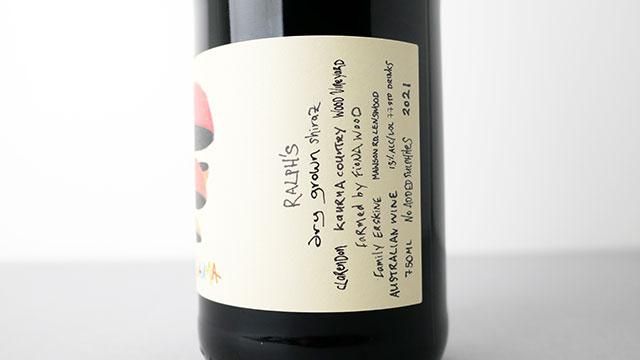 RALPH'S
dry grown shiraz
CLARENDON KAURNA COUNTRY WOOD VINEYARD
farmed by FIONA WOOD
Family ERSKINE MAWSON RD. LENSWOOD
AUSTRALIAN WINE 13% ALC/VOL 7.7 STD DRINKS
750ML NO ADDED SULPHITES 2021